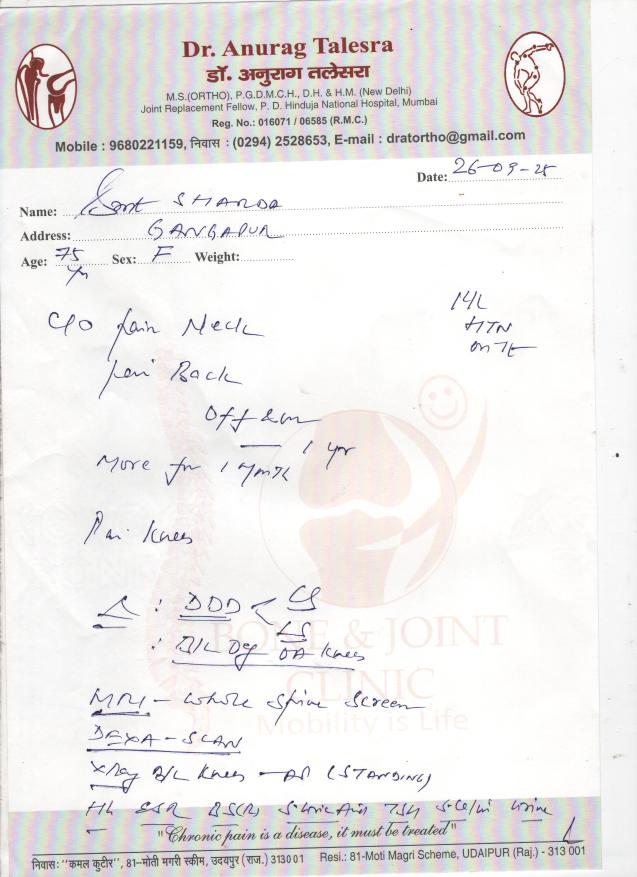 Dr. Anurag Talesra
डॉ. अनुराग तलेसरा
M.S.(ORTHO), P.G.D.M.C.H., D.H. & H.M. (New Delhi)
Joint Replacement Fellow, P. D. Hinduja National Hospital, Mumbai
Reg. No.: 016071 / 06585 (R.M.C.)
Mobile : 9680221159, निवास : (0294) 2528653, E-mail : dratortho@gmail.com
Date: 26-09-25
Name: Smt SHARDA
Address: GANGAPUR
Age: 75 yr Sex: F Weight:
HTN
on Tt
C/O Pain Neck
Pain Back
Off & on
1 yr
More for 1 month
Pain Knees
Δ : DDD < CS
LS
: B/L Deg OA Knees
BONE & JOINT
CLINIC
Mobility is Life
MRI - Whole Spine Screen
DEXA - SCAN
XRay B/L Knees - AP (STANDING)
ESR TSH Urine
"Chronic pain is a disease, it must be treated"
निवास: "कमल कुटीर", 81-मोती मगरी स्कीम, उदयपुर (राज.) 313001 Resi.: 81-Moti Magri Scheme, UDAIPUR (Raj.) - 313 001